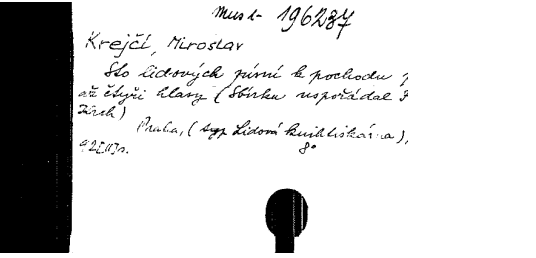 Mus 1- 196237
Krejčí, Miroslav
Sto lidových písní k pochodu
až čtyři hlasy (Sbírku uspořádal
Praha, (typ Lidová knihtiskárna),
8°